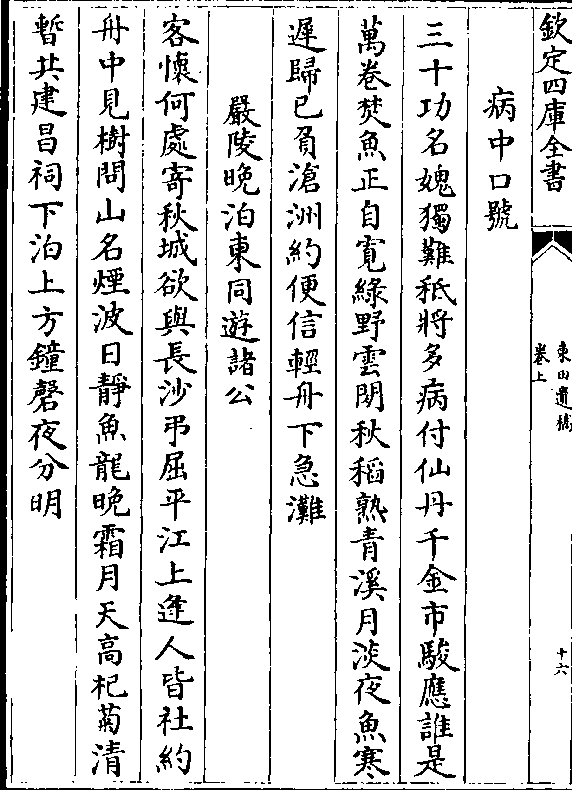 欽定四庫全書
東田遺稿
卷上
十六
病中口號
三十功名媿獨難秪將多病付仙丹千金市駿應誰是
萬卷焚魚正自寬綠野雲閒秋稻熟青溪月淡夜魚寒
遲歸已負滄洲約便信輕舟下急灘
嚴陵晚泊東同遊諸公
客懷何處寄秋城欲與長沙弔屈平江上逢人皆社約
舟中見樹問山名煙波日靜魚龍晚霜月天高杞菊清
暫共建昌祠下泊上方鐘磬夜分明